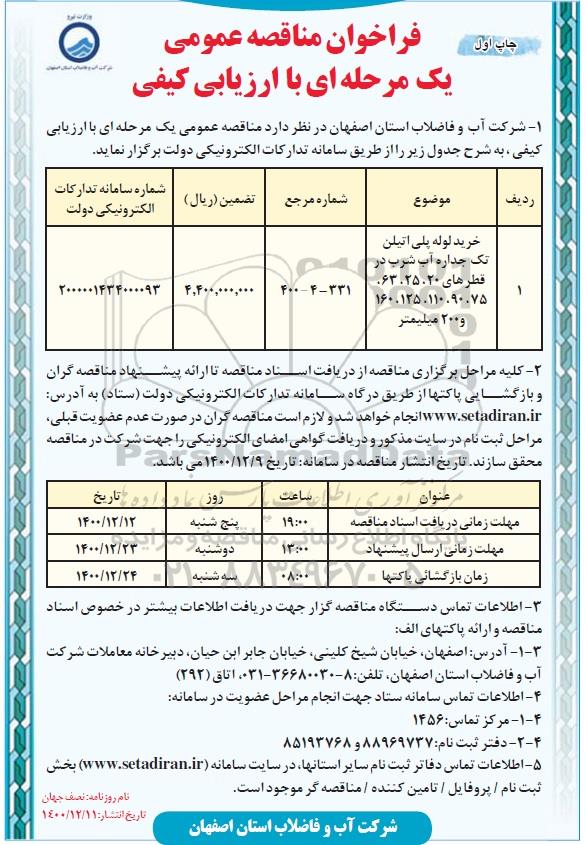 وزارت نیرو
شرکت آب و فاضلاب استان اصفهان
چاپ اول
فراخوان مناقصه عمومی
یک مرحله ای با ارزیابی کیفی
۱- شرکت آب و فاضلاب استان اصفهان در نظر دارد مناقصه عمومی یک مرحله ای با ارزیابی
کیفی ، به شرح جدول زیر را از طریق سامانه تدارکات الکترونیکی دولت برگزار نماید.
ردیف | موضوع | شماره مرجع | تضمین (ریال) | شماره سامانه تدارکات الکترونیکی دولت
۱ | خرید لوله پلی اتیلن
تک جداره آب شرب در
قطرهای ۲۰، ۲۵، ۶۳،
۷۵، ۹۰، ۱۱۰، ۱۲۵، ۱۶۰
و۲۰۰ میلیمتر | ۴۰۰-۴-۳۳۱ | ۴,۴۰۰,۰۰۰,۰۰۰ | ۲۰۰۰۰۰۱۴۳۴۰۰۰۰۹۳
۲- کلیه مراحل برگزاری مناقصه از دریافت اسناد مناقصه تا ارائه پیشنهاد مناقصه گران
و بازگشایی پاکتها از طریق درگاه سامانه تدارکات الکترونیکی دولت (ستاد) به آدرس:
www.setadiran.ir انجام خواهد شد و لازم است مناقصه گران در صورت عدم عضویت قبلی،
مراحل ثبت نام در سایت مذکور و دریافت گواهی امضای الکترونیکی را جهت شرکت در مناقصه
محقق سازند. تاریخ انتشار مناقصه در سامانه: تاریخ ۱۴۰۰/۱۲/۹ می باشد.
عنوان | ساعت | روز | تاریخ
مهلت زمانی دریافت اسناد مناقصه | ۱۹:۰۰ | پنج شنبه | ۱۴۰۰/۱۲/۱۲
مهلت زمانی ارسال پیشنهاد | ۱۳:۰۰ | دوشنبه | ۱۴۰۰/۱۲/۲۳
زمان بازگشائی پاکتها | ۰۸:۰۰ | سه شنبه | ۱۴۰۰/۱۲/۲۴
۳- اطلاعات تماس دستگاه مناقصه گزار جهت دریافت اطلاعات بیشتر در خصوص اسناد
مناقصه و ارائه پاکتهای الف:
۳-۱- آدرس: اصفهان، خیابان شیخ کلینی، خیابان جابر ابن حیان، دبیرخانه معاملات شرکت
آب و فاضلاب استان اصفهان، تلفن: ۸-۳۶۶۸۰۰۳۰-۰۳۱، اتاق (۲۹۲)
۴- اطلاعات تماس سامانه ستاد جهت انجام مراحل عضویت در سامانه:
۴-۱- مرکز تماس: ۱۴۵۶
۴-۲- دفتر ثبت نام: ۸۸۹۶۹۷۳۷ و ۸۵۱۹۳۷۶۸
۵- اطلاعات تماس دفاتر ثبت نام سایر استانها، در سایت سامانه (www.setadiran.ir) بخش
ثبت نام / پروفایل / تامین کننده / مناقصه گر موجود است.
نام روزنامه: نصف جهان
تاریخ انتشار: ۱۴۰۰/۱۲/۱۱
شرکت آب و فاضلاب استان اصفهان
ParsNamadData
پایگاه اطلاع رسانی مناقصه و مزایده
۰۲۱-۸۸۳۴۹۶۷۰-۵